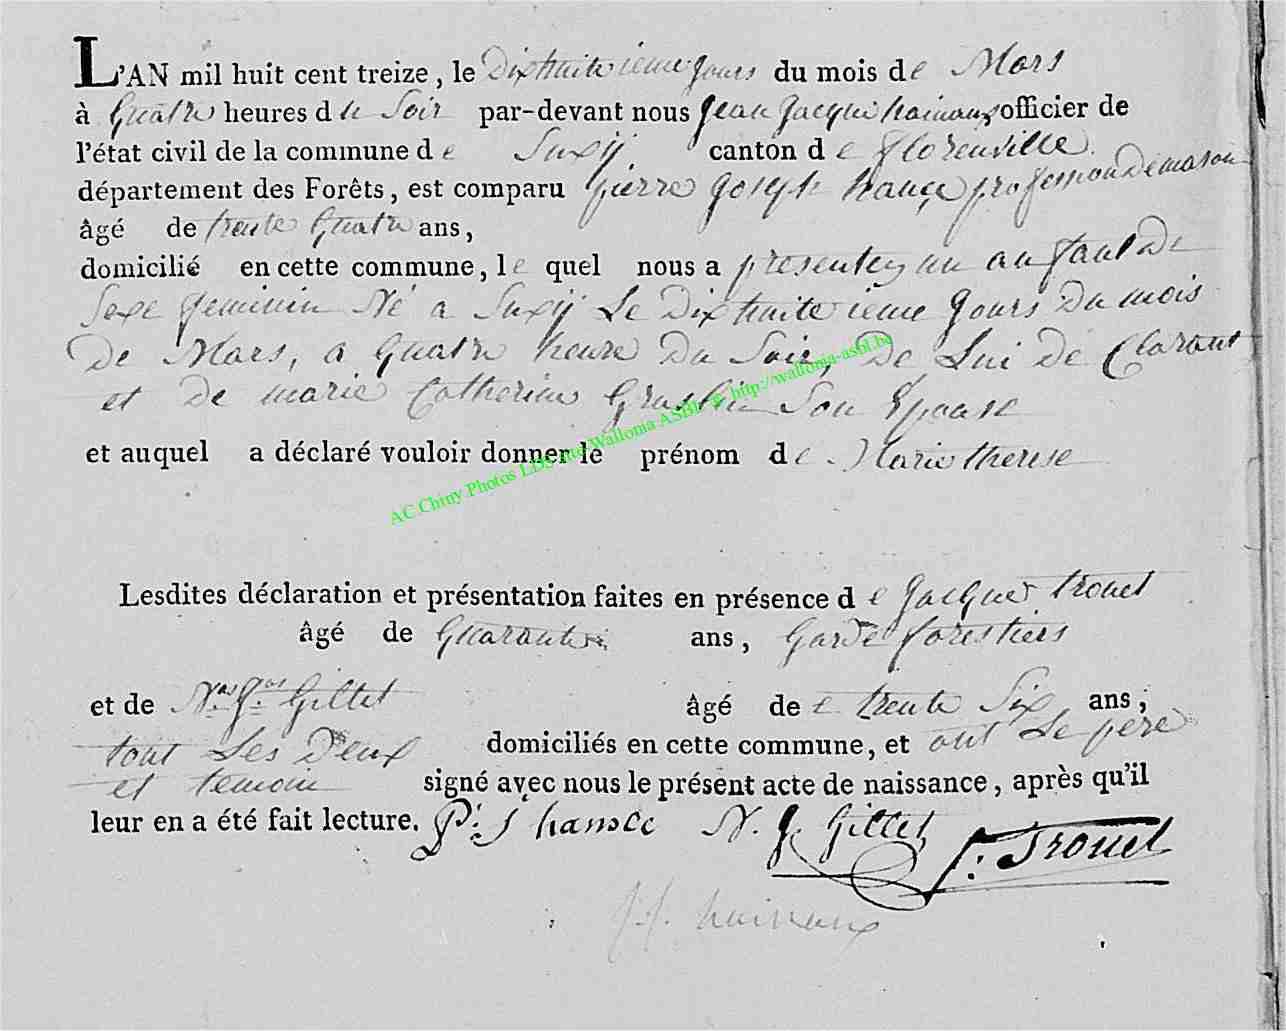 L'AN mil huit cent treize, le Dixhuitieme Jours du mois de Mars
à Quatre heures du Soir par-devant nous Jean Jacque hainaux officier de
l'état civil de la commune de Suxÿ canton de florenville
département des Forêts, est comparu Pierre Joseph hance profession De mason
âgé de trente Quatre ans,
domicilié en cette commune, le quel nous a presentez un anfant De
Sexe feminin Né a Suxÿ Le Dixhuitieme Jours Du mois
De Mars, a Quatre heure Du Soir, De Lui De Clarant
et de marie Catherine Graslin Son Epouse
et auquel a déclaré vouloir donner le prénom de Marie therese
AC Chiny Photos LDS via Wallonia ASBL - http://wallonia-asbl.be
Lesdites déclaration et présentation faites en présence de Jacques trouet
âgé de Quarante ans, Garde forestiers
et de Nas Jos Gillet âgé de trente Six ans;
tout Les Deux domiciliés en cette commune, et ont Le pere
et temoin signé avec nous le présent acte de naissance, après qu'il
leur en a été fait lecture. P: J hansce N. J. Gillet J: Trouet
J.J. hainaux